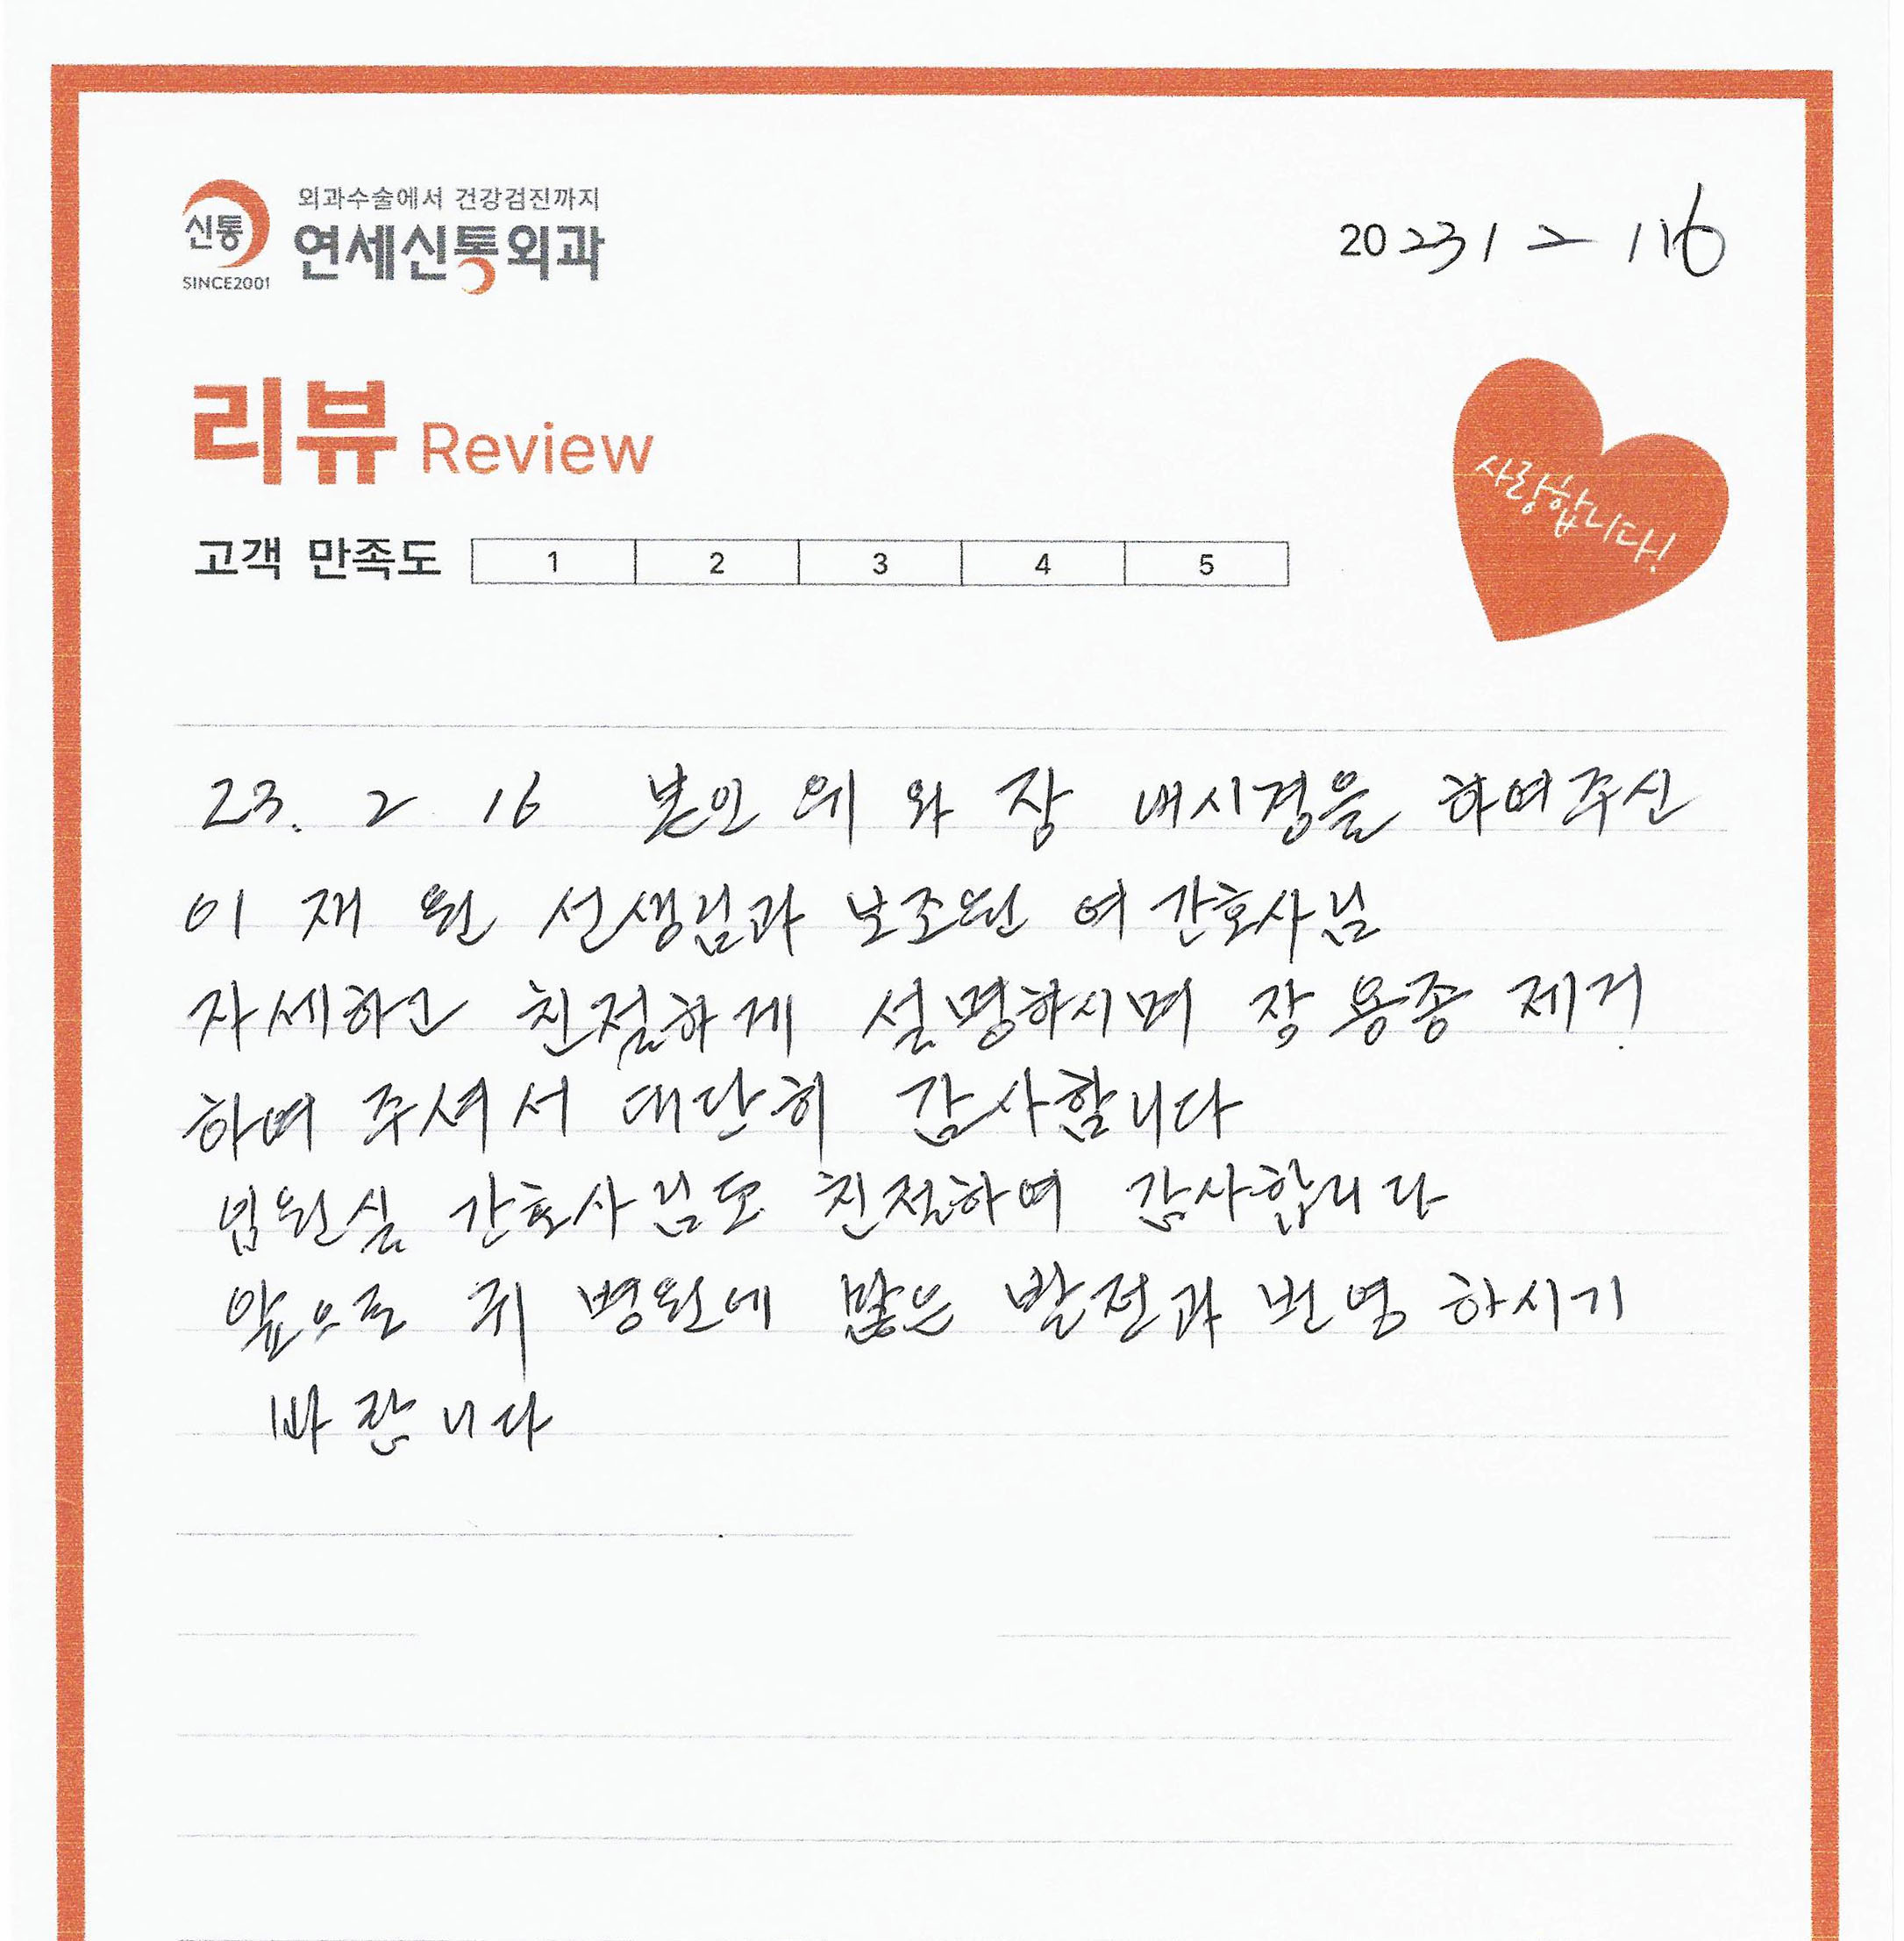 외과수술에서 건강검진까지
신통 연세신통외과
SINCE2001
2023 / 2 / 16
리뷰 Review
사랑합니다!
고객 만족도 1 2 3 4 5
23. 2 16 본인 위 와 장 내시경을 하여주신
이 재 원 선생님과 보조원 여 간호사님
자세하고 친절하게 설명하시며 장 용종 제거
하여 주셔서 대단히 감사합니다
입원실 간호사님도 친절하여 감사합니다
앞으로 귀 병원에 많은 발전과 번영 하시기
바랍니다